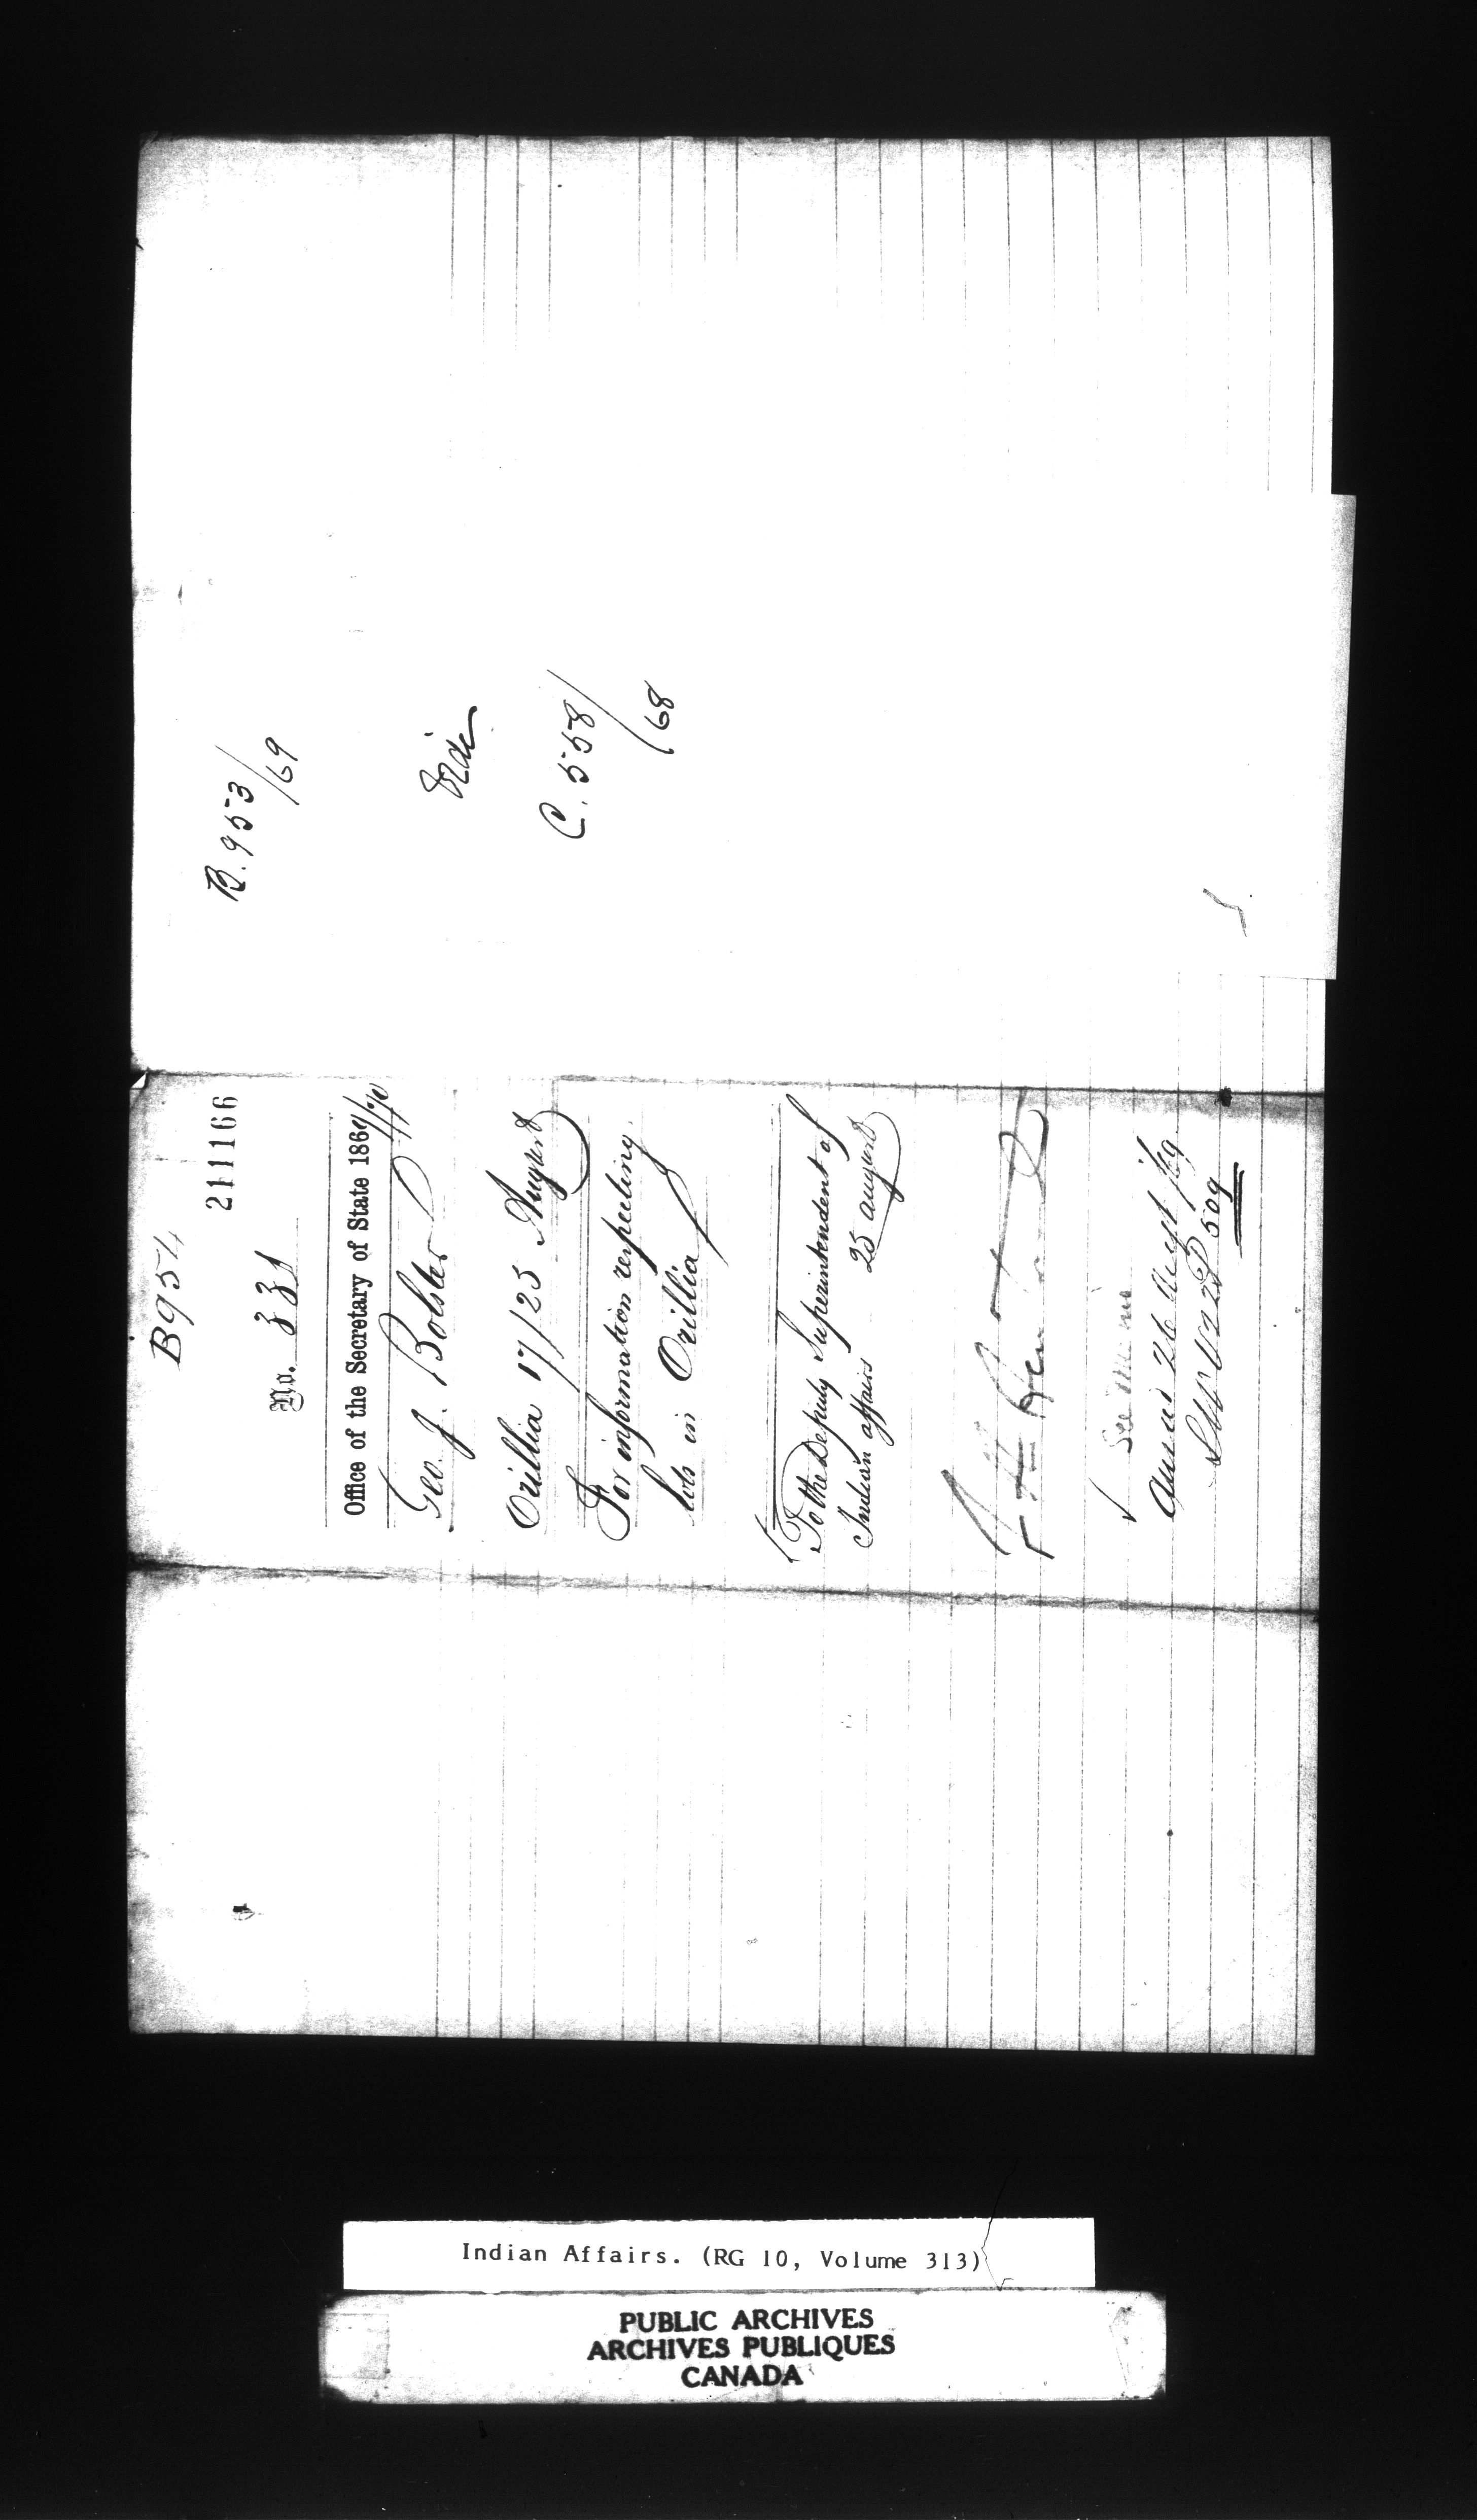 B954
211166
No. 331
Office of the Secretary of State 1869/70
Geo. J. Bolster
Orillia 17/25 August
For information respecting
lots in Orillia
To the Deputy Superintendent of
Indian affairs 25 august
See
26 /69
509
B. 953/69
C. 558/68
Indian Affairs. (RG 10, Volume 313)
PUBLIC ARCHIVES
ARCHIVES PUBLIQUES
CANADA